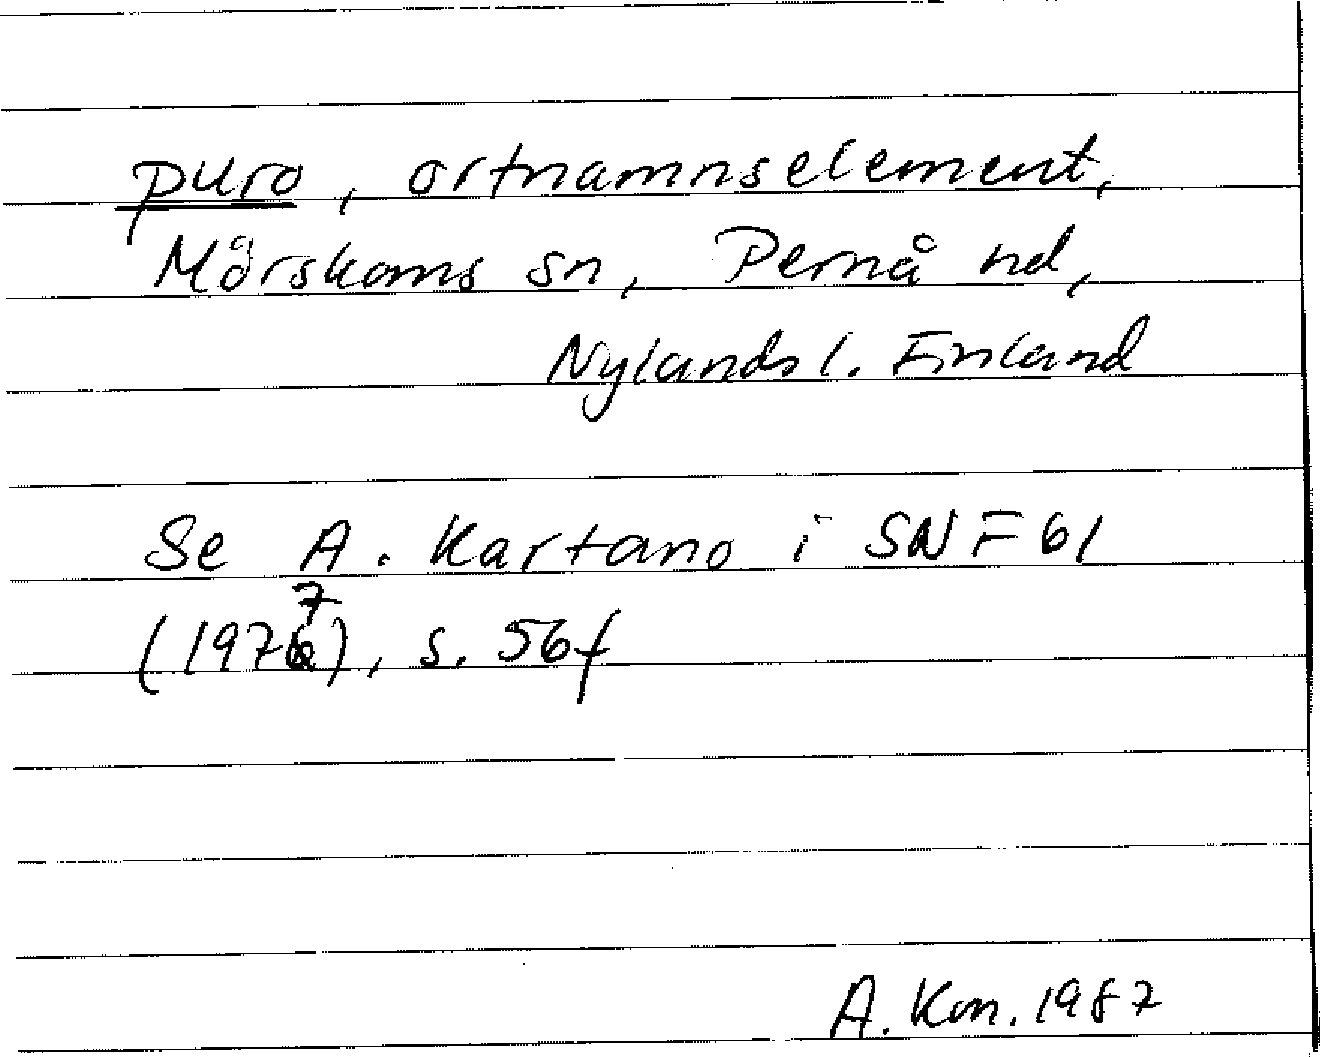 puro, ortnamnselement,
Mörskoms sn, Pernå hd,
Nylands l. Finland
Se A. Kartano i SNF 61
(1977), s. 56f
A. Kon. 1987